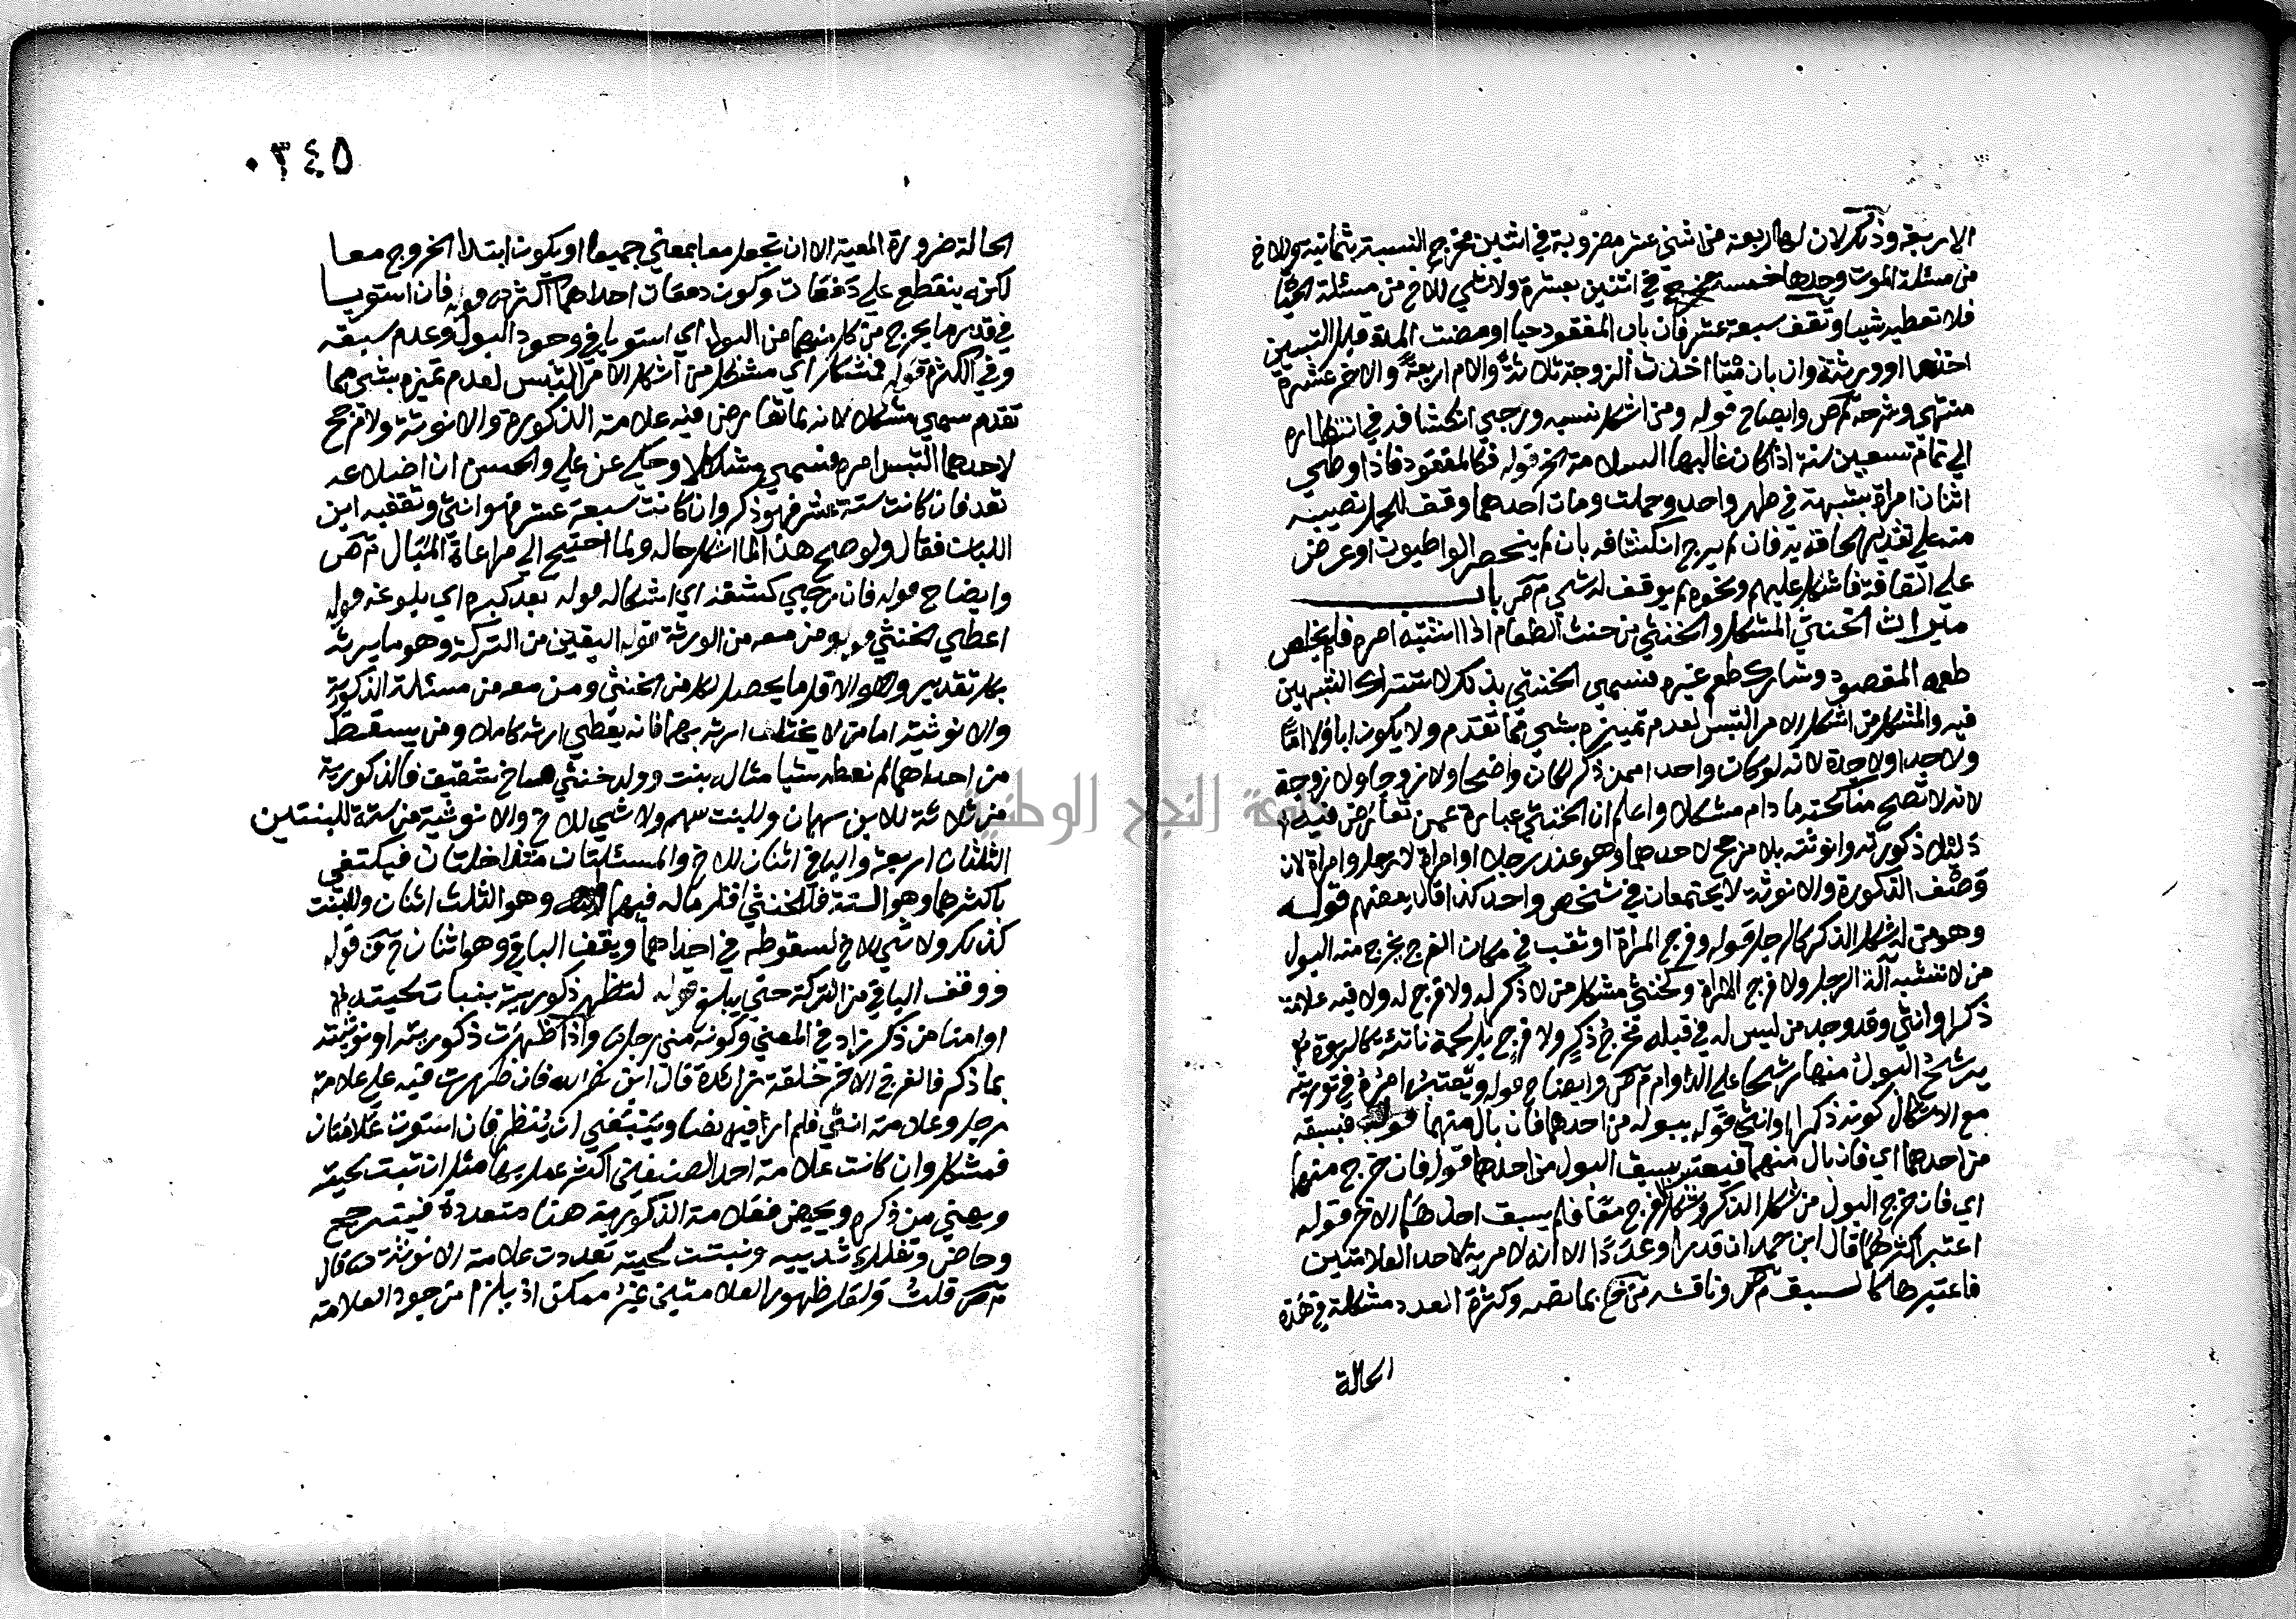 الاربعة وذلك لان لها اربعة من اثني عشر مضروبة في اثنين مخرج النسبة بثمانية وللاخ
من مسئلة الموت وحدها خمسة في اثنين بعشرة ولا شي للاخ من مسئلة الحياة
فلا تعطيه شيا وتقف سبعة عشر فان بان المفقود حيا او مضت المدة قبل التبيين
اخذها او ورثته وان بان ميتا اخذت الزوجة ثلاثة والام اربعة والاخ عشرة
منتهى وشرحه م ص وايضاح قوله ومن اشكل نسبه ورجي انكشافه في انتظاره
الى تمام تسعين سنة اذا كان غالبها السلامة الخ قوله فكالمفقود فاذا وطي
اثنان امراة بشبهة في طهر واحد وحملت ومات احدهما وقف للحمل نصيبه
منه على تقدير الحاقه به فان لم يرج انكشافه بان لم ينحصر الواطيون او عرض
على القافة فاشكل عليهم ونحوه لم يوقف له شي م ص باب
ميراث الخنثى المشكل والخنثى من خنث الطعام اذا اشتبه امره فلم يخلص
طعمه المقصود وشارك طعم غيره فسمي الخنثى بذلك لاشتراك الشبهين
فيه والمشكل من اشكل الامر التبس لعدم تميزه بشي مما تقدم ولا يكون ابا ولا اما
ولا جدا ولا جدة لانه لو كان واحدا ممن ذكر لكان واضحا ولا زوجا ولا زوجة
لانه لا تصح مناكحته ما دام مشكلا واعلم ان الخنثى عبارة عمن تعارض فيه
دليل ذكورته وانوثته بلا مرجح لاحدهما وهو عند رجل او امراة لا رجل وامراة لان
وصف الذكورة والانوثة لا يجتمعان في شخص واحد كذا قال بعضهم قوله
وهو من له شكل الذكر كالرجل قوله وفرج المراة او ثقب في مكان الفرج يخرج منه البول
من لا تشبه آلة الرجل ولا فرج المراة وكخنثى مشكل من لا ذكر له ولا فرج له ولا فيه علامة
ذكر او انثى وقد وجد من ليس له في قبله مخرج ذكر ولا فرج بل لحمة ناتئة كالربوة
يرشح البول منها رشحا على الدوام م ص وايضاح قوله ويعتبر امره في توريثه
مع الاشكال كونه ذكرا او انثى قوله ببوله من احدهما فان بال منهما قوله فبسبقه
من احدهما اي فان بال منهما فيعتبر بسبق البول من احدهما قوله فان خرج منهما
اي فان خرج البول من شكل الذكر وشكل الفرج معا فلم يسبق احدهما الاخر قوله
اعتبر اكثرهما قال ابن حمدان قدرا وعددا الا انه لا مزية لاحد العلامتين
فاعتبرها كالسبق م ص وناقشه م خ بما نصه وكثرة العدد مشكلة في هذه
الحالة
٠٣٤٥
الحالة ضرورة المعية الا ان تجعل معا بمعنى جميعا او يكون ابتدا الخروج معا
لكنه ينقطع على دفعات وكون دفعات احداهما اكثر قوله فان استويا
في قدر ما يخرج من كل منهما من البول اي استويا في وجود البول وعدم سبقه
وفي الكثرة قوله فمشكل اي مشكل من اشكل الامر التبس لعدم تميزه بشي مما
تقدم سمي مشكلا لانه لما تعارض فيه علامة الذكورة والانوثة ولا مرجح
لاحدهما التبس امره فسمي مشكلا وحكي عن علي والحسن ان اضلاعه
تعد فان كانت ستة عشر فهو ذكر وان كانت سبعة عشر فهو انثى وتعقبه ابن
اللبان فقال ولو صح هذا لما اشكل حاله ولما احتيج الى مراعاة المبال م ص
وايضاح قوله فان رجي كشفه اي اشكاله قوله بعد كبره اي بلوغه قوله
اعطي الخنثى قوله ومن معه من الورثة قوله اليقين من التركة وهو ما يرثه
بكل تقدير وهو الاقل ما يحصل لكل من الخنثى ومن معه من مسئلة الذكورية
والانوثية اما من لا يختلف ارثه بهما فانه يعطي ارثه كاملا ومن يسقط
من احداهما لم نعطه شيا مثاله بنت وولد خنثى واخ شقيق فالذكورية
من ثلاثة للابن سهمان وللبنت سهم ولا شي للاخ والانوثية من ستة للبنتين
الثلثان اربعة والباقي اثنان للاخ والمسئلتان متداخلتان فيكتفى
باكثرهما وهو الستة فللخنثى اقل ما له فيهما وهو الثلث اثنان وللبنت
كذلك ولا شي للاخ لسقوطه في احداهما ويقف الباقي وهو اثنان قوله
ووقف الباقي من التركة حتى يبلغ قوله لتظهر ذكوريته بنبات لحيته
او امنا من ذكر زاد في المغني وكونه مني رجل واذا ظهرت ذكوريته او نوثيته
بما ذكر فالفرج الاخر خلقة زائدة قال ابن نصر الله فان ظهرت فيه على علامة
رجل وعلامة انثى فلم ار فيه نصا وينبغي ان ينظر فان استوت علامتان
فمشكل وان كانت علامة احد الصنفين اكثر عمل بها مثل ان تنبت لحيته
ويمني من ذكره ويحيض فعلامة الذكورية هنا متعددة فيترجح
وحاض وتفلك ثدييه ونبتت لحيته تعددت علامة الانوثة قال
م ص قلت ولعل ظهور العلامتين غير ممكن اذ يلزم من وجود العلامة
جامعة النجاح الوطنية